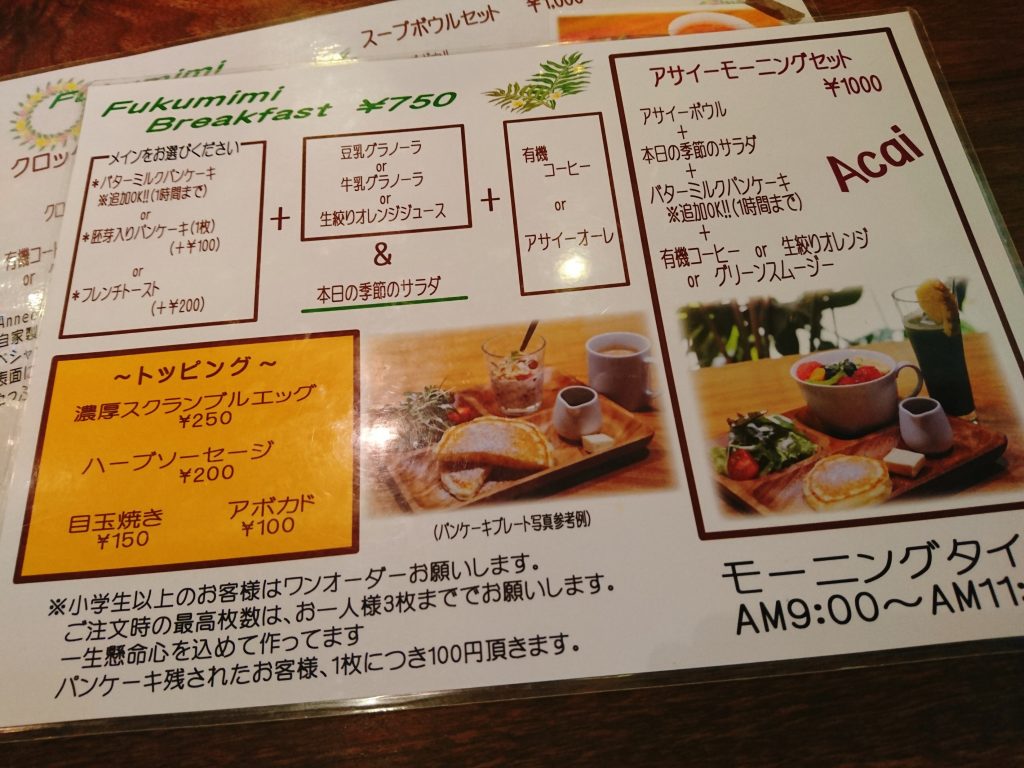 スープボウルセット
¥1,000
Fukumimi
Breakfast ¥750
メインをお選びください
*バターミルクパンケーキ
※追加OK!!(1時間まで)
or
*胚芽入りパンケーキ(1枚)
(+¥100)
or
*フレンチトースト
(+¥200)
+
豆乳グラノーラ
or
牛乳グラノーラ
or
生絞りオレンジジュース
&
本日の季節のサラダ
+
有機
コーヒー
or
アサイーオーレ
アサイーモーニングセット
¥1000
アサイーボウル
+
本日の季節のサラダ
+
バターミルクパンケーキ
※追加OK!!(1時間まで)
+
有機コーヒー or 生絞りオレンジ
or グリーンスムージー
Acai
~トッピング~
濃厚スクランブルエッグ
¥250
ハーブソーセージ
¥200
目玉焼き
¥150
アボカド
¥100
(パンケーキプレート写真参考例)
※小学生以上のお客様はワンオーダーお願いします。
ご注文時の最高枚数は、お一人様3枚まででお願いします。
一生懸命心を込めて作ってます
パンケーキ残されたお客様、1枚につき100円頂きます。
モーニングタイ
AM9:00~AM11:
クロッ
有機コー
or
自家製
表面に